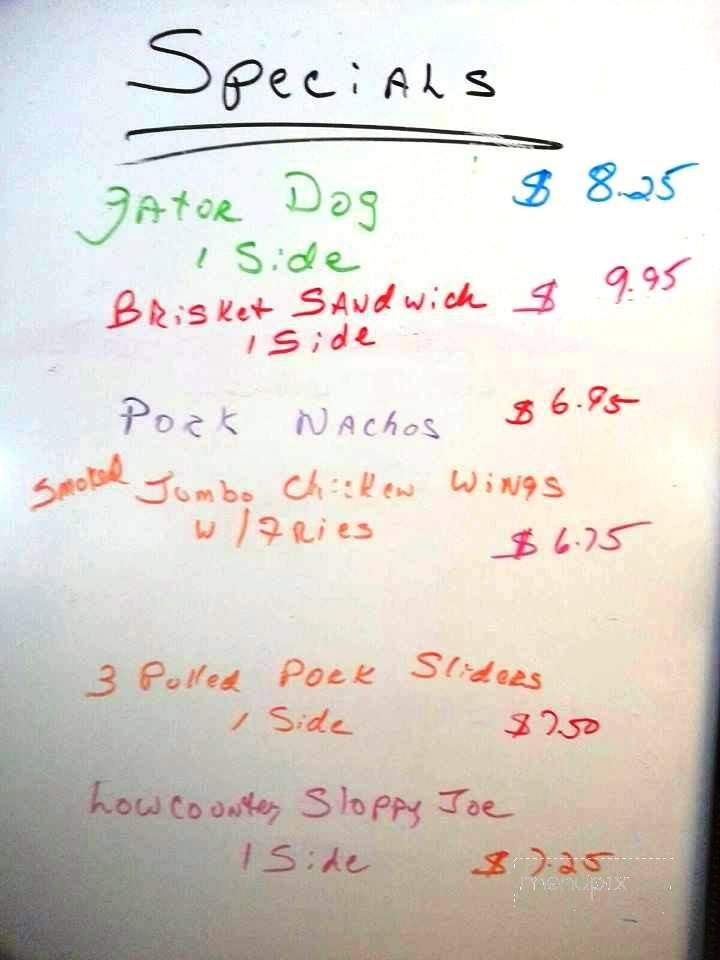 Specials
Gator Dog $ 8.25
1 Side
Brisket Sandwich $ 9.95
1 Side
Pork Nachos $ 6.95
Smoked Jumbo Chicken Wings
w/Fries $ 6.75
3 Pulled Pork Sliders
1 Side $7.50
Lowcountry Sloppy Joe
1 Side $ 7.25
menupix